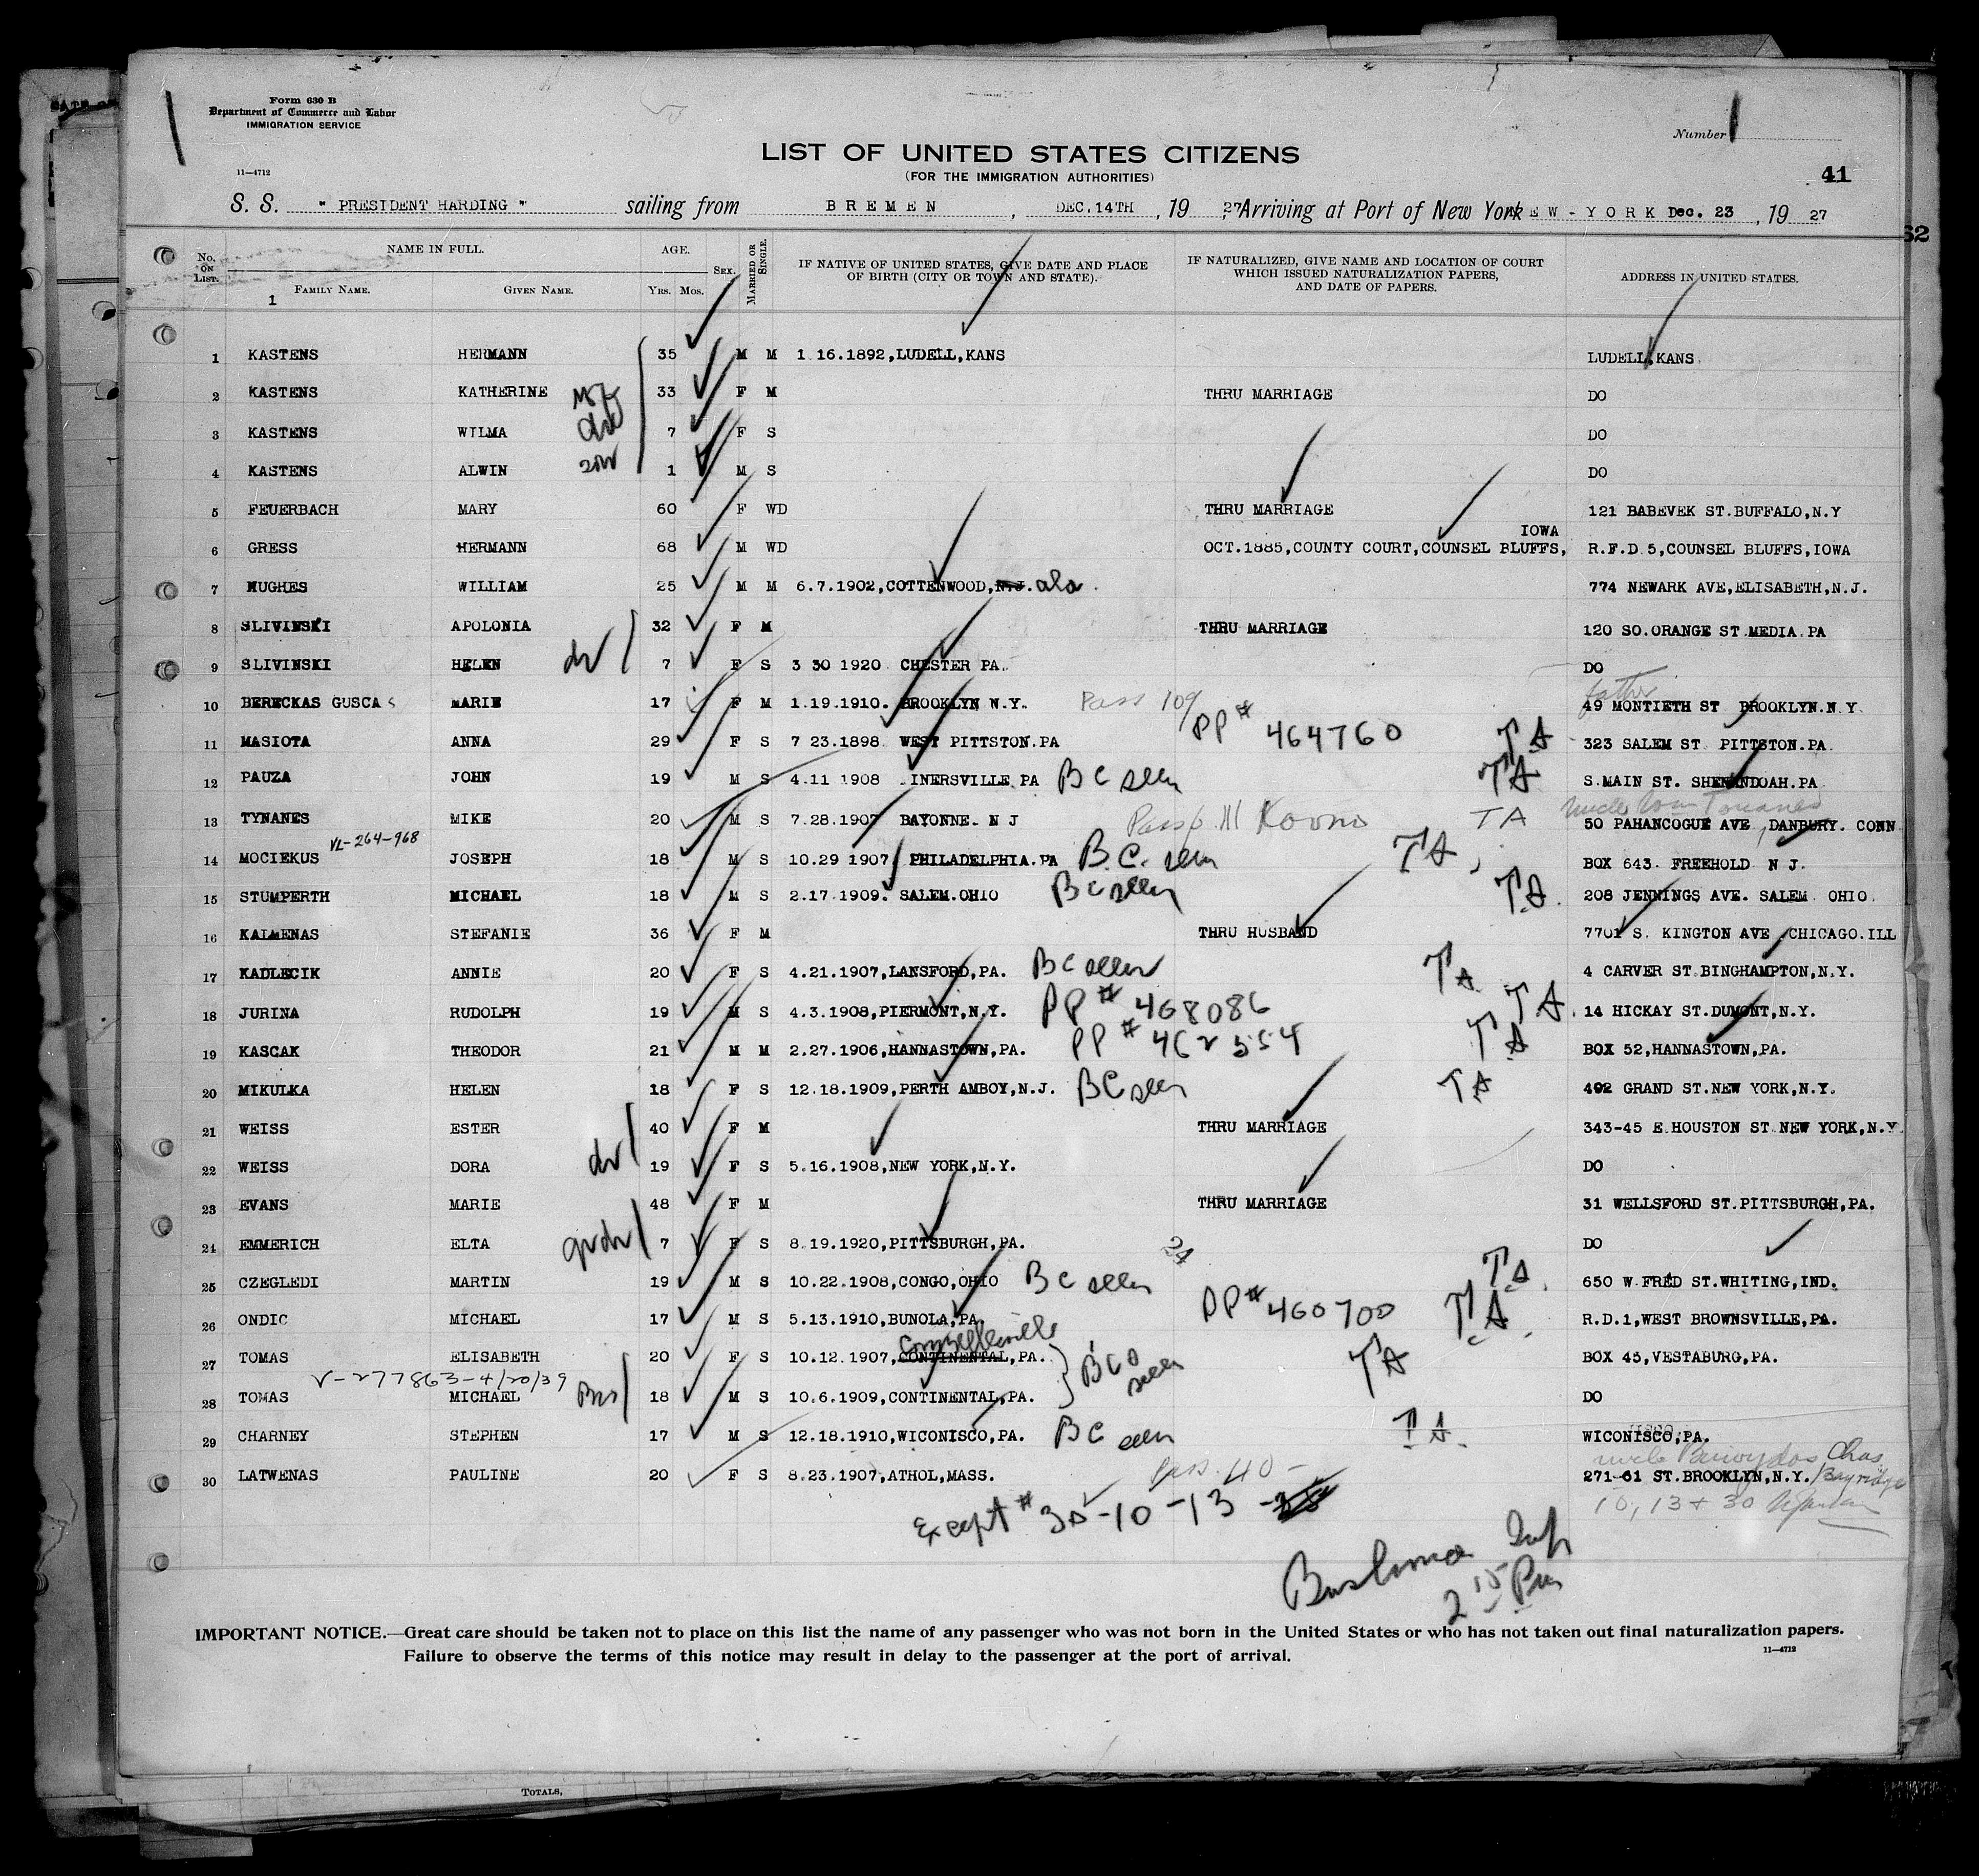 Form 630 B
Department of Commerce and Labor
IMMIGRATION SERVICE
Number
LIST OF UNITED STATES CITIZENS
(FOR THE IMMIGRATION AUTHORITIES)
11—4712
41
S. S. " PRESIDENT HARDING " sailing from BREMEN, DEC.14TH, 19 27, Arriving at Port of New York NEW-YORK Dec. 23, 19 27
62
No. ON LIST. NAME IN FULL. AGE. SEX. MARRIED OR SINGLE. IF NATIVE OF UNITED STATES, GIVE DATE AND PLACE OF BIRTH (CITY OR TOWN AND STATE). IF NATURALIZED, GIVE NAME AND LOCATION OF COURT WHICH ISSUED NATURALIZATION PAPERS, AND DATE OF PAPERS. ADDRESS IN UNITED STATES.
FAMILY NAME. GIVEN NAME. YRS. MOS.
1
1 KASTENS HERMANN 35 M M 1 16.1892,LUDELL,KANS LUDELL,KANS.
2 KASTENS KATHERINE 33 F M THRU MARRIAGE DO
3 KASTENS WILMA 7 F S DO
4 KASTENS ALWIN 1 M S DO
5 FEUERBACH MARY 60 F WD THRU MARRIAGE 121 BABEVEK ST.BUFFALO,N.Y
6 GRESS HERMANN 68 M WD OCT.1885,COUNTY COURT,COUNSEL BLUFFS, IOWA R.F.D 5,COUNSEL BLUFFS,IOWA
7 HUGHES WILLIAM 25 M M 6.7.1902,COTTENWOOD,N.J. ala. 774 NEWARK AVE,ELISABETH,N.J.
8 SLIVINSKI APOLONIA 32 F M THRU MARRIAGE 120 SO.ORANGE ST MEDIA.PA
9 SLIVINSKI HELEN 7 F S 3 30 1920 CHESTER PA. DO
father
10 BERECKAS GUSCAS MARIE 17 F M 1.19.1910. BROOKLYN N.Y. Pass 109 49 MONTIETH ST BROOKLYN.N Y
11 MASIOTA ANNA 29 F S 7 23.1898 WEST PITTSTON.PA PP# 464760 TA 323 SALEM ST PITTSTON.PA.
12 PAUZA JOHN 19 M S 4.11 1908 .INERSVILLE.PA BC seen TA S.MAIN ST. SHENANDOAH.PA
13 TYNANES MIKE 20 M S 7.28.1907 BAYONNE. N J Passp. 111 Kovno TA 50 PAHANCOGUE AVE,DANBURY. CONN
VL-264-968
14 MOCIEKUS JOSEPH 18 M S 10.29 1907 PHILADELPHIA.PA B.C. seen TA BOX 643. FREEHOLD N J.
15 STUMPERTH MICHAEL 18 M S 2.17.1909. SALEM.OHIO BC seen TA. 208 JENNINGS AVE. SALEM OHIO.
16 KALMENAS STEFANIE 36 F M THRU HUSBAND 7701 S. KINGTON AVE CHICAGO.ILL
17 KADLECIK ANNIE 20 F S 4.21.1907,LANSFORD,PA. BC seen TA 4 CARVER ST BINGHAMPTON,N.Y.
18 JURINA RUDOLPH 19 M S 4.3.1908,PIERMONT,N.Y. PP# 468086 TA. 14 HICKAY ST.DUMONT,N.Y.
19 KASCAK THEODOR 21 M M 2.27.1906,HANNASTOWN,PA. PP# 462554 TA BOX 52,HANNASTOWN,PA.
20 MIKULKA HELEN 18 F S 12.18.1909,PERTH AMBOY,N.J. BC seen TA 492 GRAND ST.NEW YORK,N.Y.
21 WEISS ESTER 40 F M THRU MARRIAGE 343-45 E.HOUSTON ST NEW YORK,N.Y.
22 WEISS DORA 19 F S 5.16.1908,NEW YORK,N.Y. DO
23 EVANS MARIE 48 F M THRU MARRIAGE 31 WELLSFORD ST.PITTSBURGH,PA.
24 EMMERICH ELTA 7 F S 8.19.1920,PITTSBURGH,PA. 24 DO
25 CZEGLEDI MARTIN 19 M S 10.22.1908,CONGO,OHIO BC seen TA. 650 W FRED ST.WHITING,IND.
26 ONDIC MICHAEL 17 M S 5.13.1910,BUNOLA,PA. PP# 460700 TA R.D.1,WEST BROWNSVILLE,PA.
Connellsville
27 TOMAS ELISABETH 20 F S 10.12.1907,CONTINENTAL,PA. BCs seen TA BOX 45,VESTABURG,PA.
V-277863-4/20/39
28 TOMAS MICHAEL 18 M S 10.6.1909,CONTINENTAL,PA. DO
29 CHARNEY STEPHEN 17 M S 12.18.1910,WICONISCO,PA. BC seen TA. WICONISCO,PA.
30 LATWENAS PAULINE 20 F S 8.23.1907,ATHOL,MASS. pass. 40 - 271-61 ST.BROOKLYN,N.Y. Bayridge
Except # 30-10-13
10, 13 + 30
2 15 Pm
IMPORTANT NOTICE.—Great care should be taken not to place on this list the name of any passenger who was not born in the United States or who has not taken out final naturalization papers.
Failure to observe the terms of this notice may result in delay to the passenger at the port of arrival.
11—4712
TOTALS,